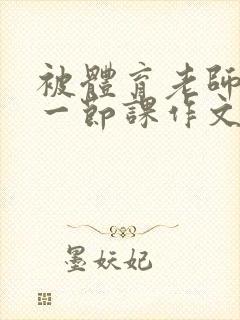 被體育老師
一節課作文
墨妖妃